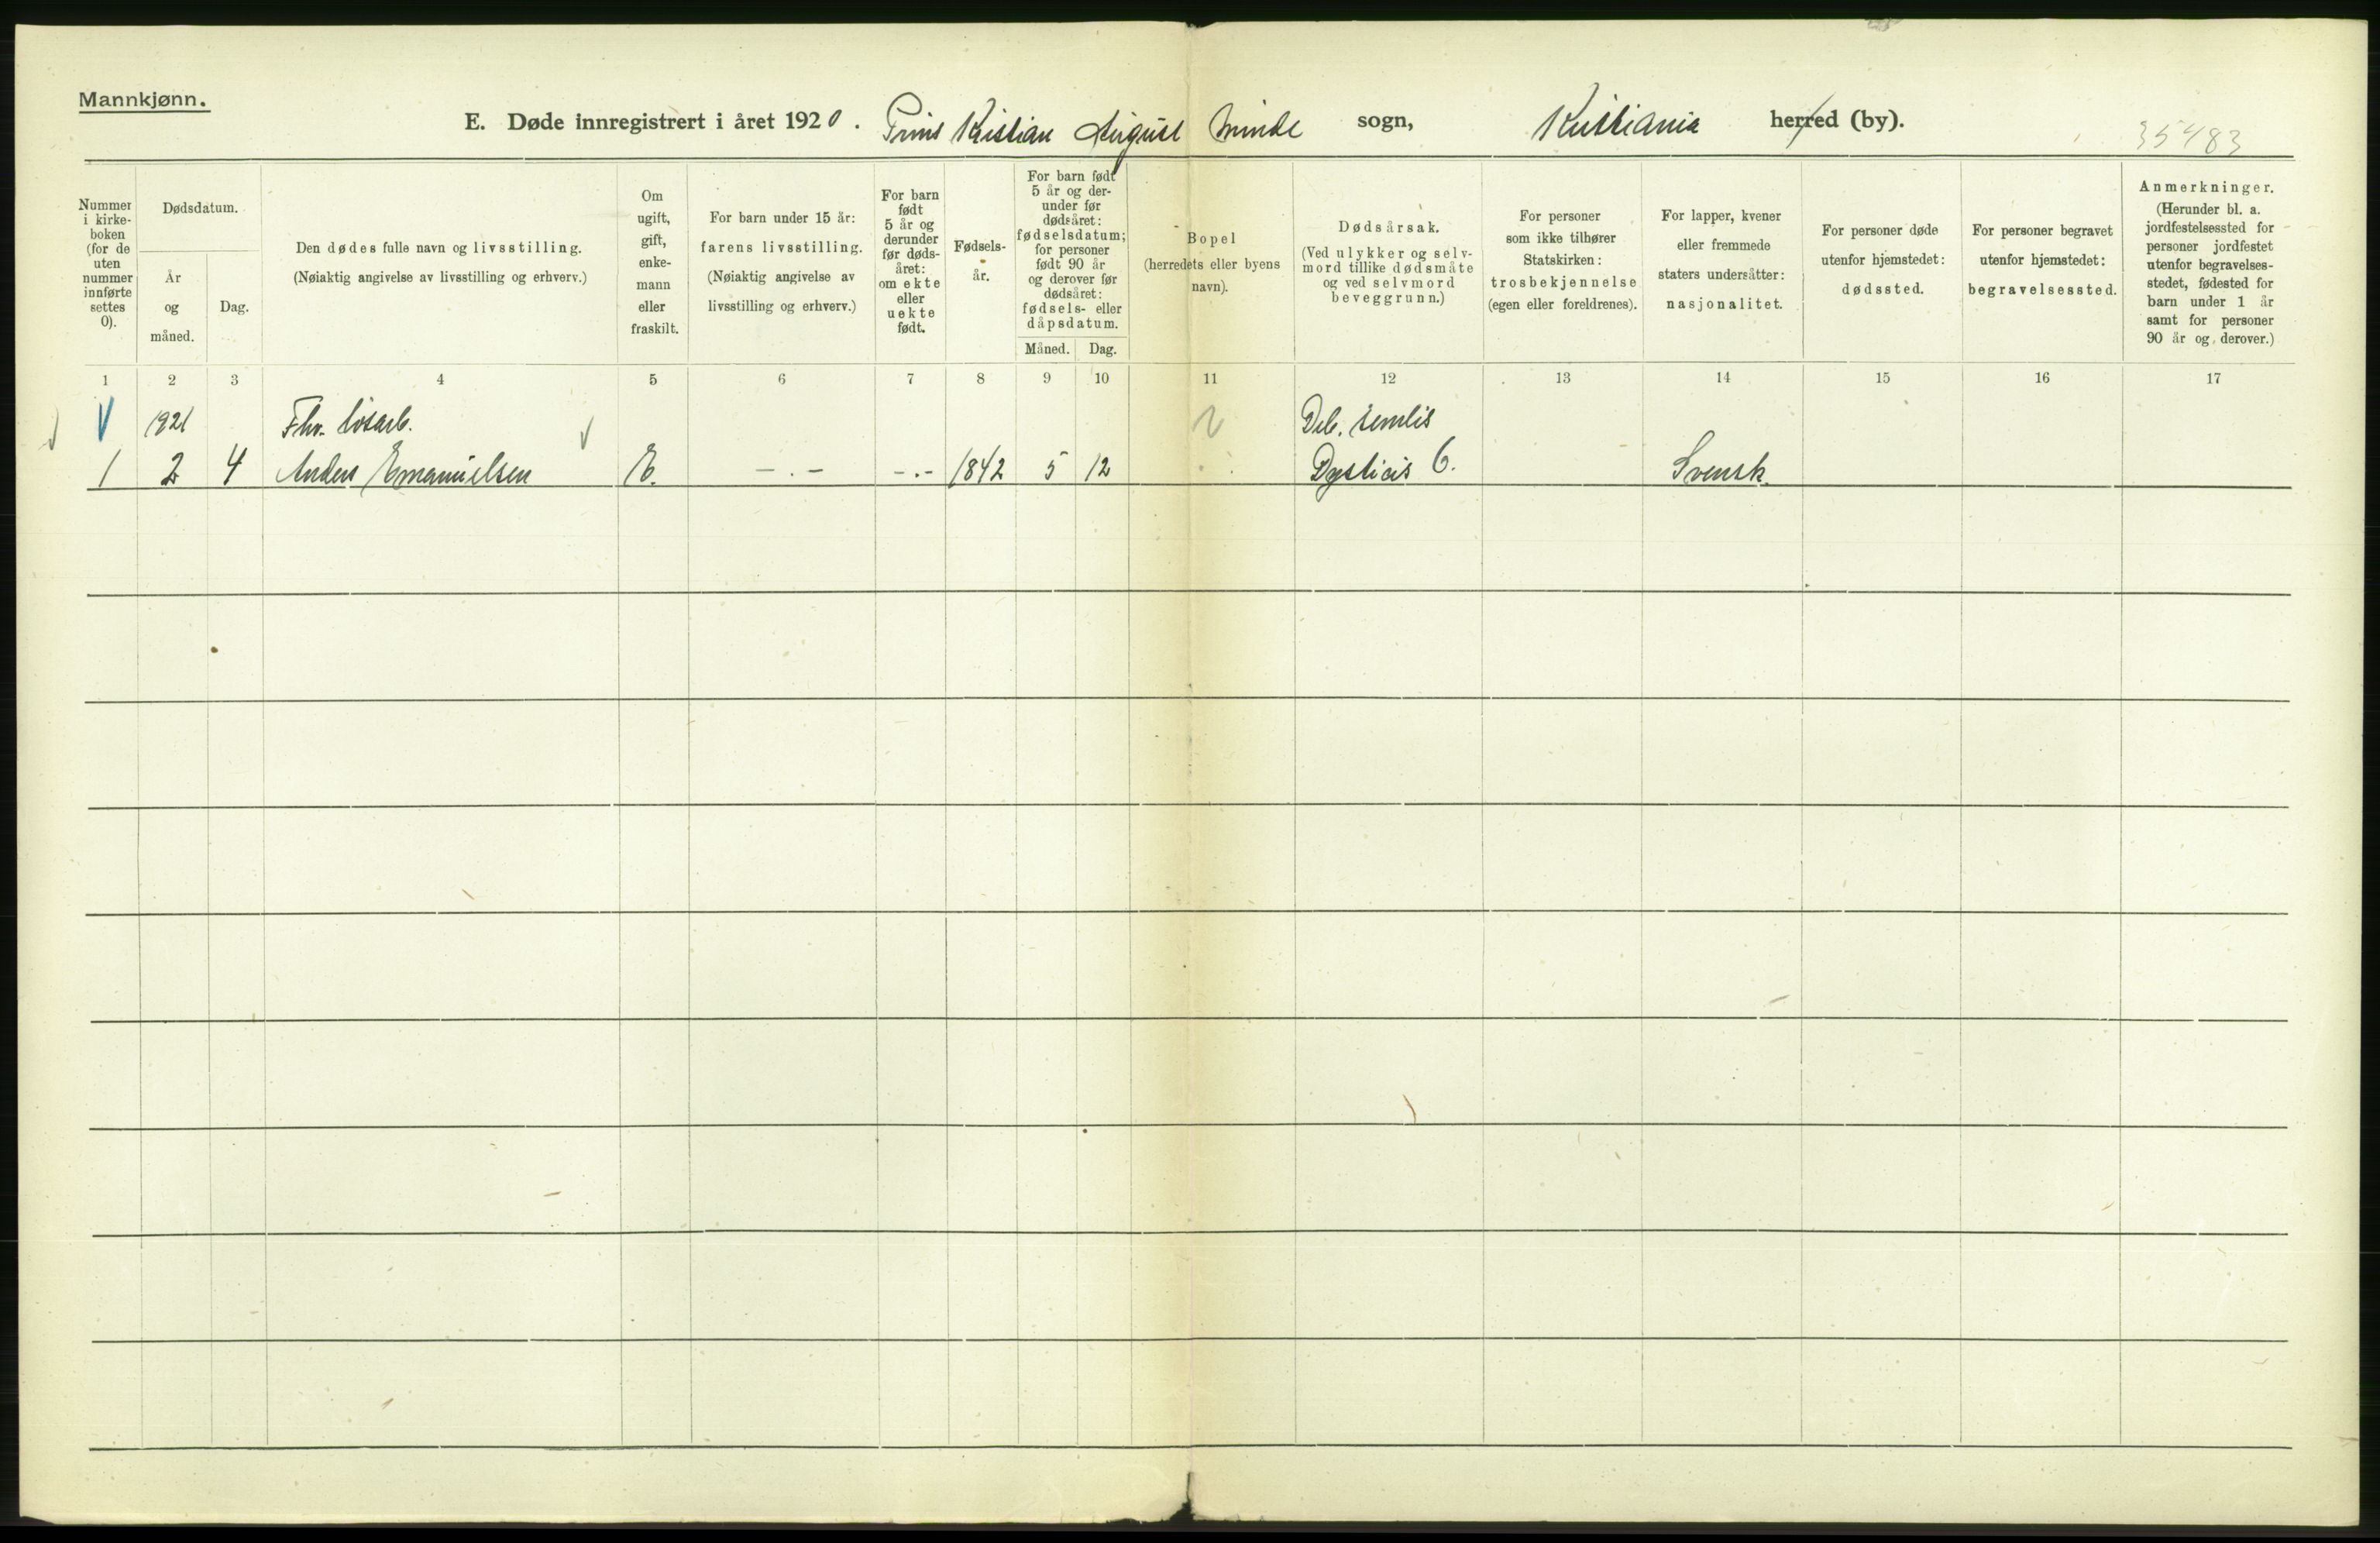 Mannkjønn.
E. Døde innregistrert i året 1920. Prins Kristian August Minde sogn, Kristiania herred (by).
35483
Nummer i kirke-boken (for de uten nummer innførte settes 0).
Dødsdatum.
År og måned.
Dag.
Den dødes fulle navn og livsstilling.
(Nøiaktig angivelse av livsstilling og erhverv.)
Om ugift, gift, enke-mann eller fraskilt.
For barn under 15 år:
farens livsstilling.
(Nøiaktig angivelse av
livsstilling og erhverv.)
For barn født 5 år og derunder før døds-året: om ekte eller uekte født.
Fødsels-år.
For barn født 5 år og der-under før dødsåret: fødselsdatum; for personer født 90 år og derover før dødsåret: fødsels- eller dåpsdatum.
Måned. Dag.
Bopel
(herredets eller byens
navn).
Dødsårsak.
(Ved ulykker og selv-
mord tillike dødsmåte
og ved selvmord
beveggrunn.)
For personer
som ikke tilhører
Statskirken:
trosbekjennelse
(egen eller foreldrenes).
For lapper, kvener
eller fremmede
staters undersåtter:
nasjonalitet.
For personer døde
utenfor hjemstedet:
dødssted.
For personer begravet
utenfor hjemstedet:
begravelsessted.
Anmerkninger.
(Herunder bl. a.
jordfestelsessted for
personer jordfestet
utenfor begravelses-
stedet, fødested for
barn under 1 år
samt for personer
90 år og derover.)
1 2 3 4 5 6 7 8 9 10 11 12 13 14 15 16 17
1921 Fhv. løsarb. Deb. senilis
1 2 4 Anders Emanuelsen E. -.- -.- 1842 5 12 6. Svensk.